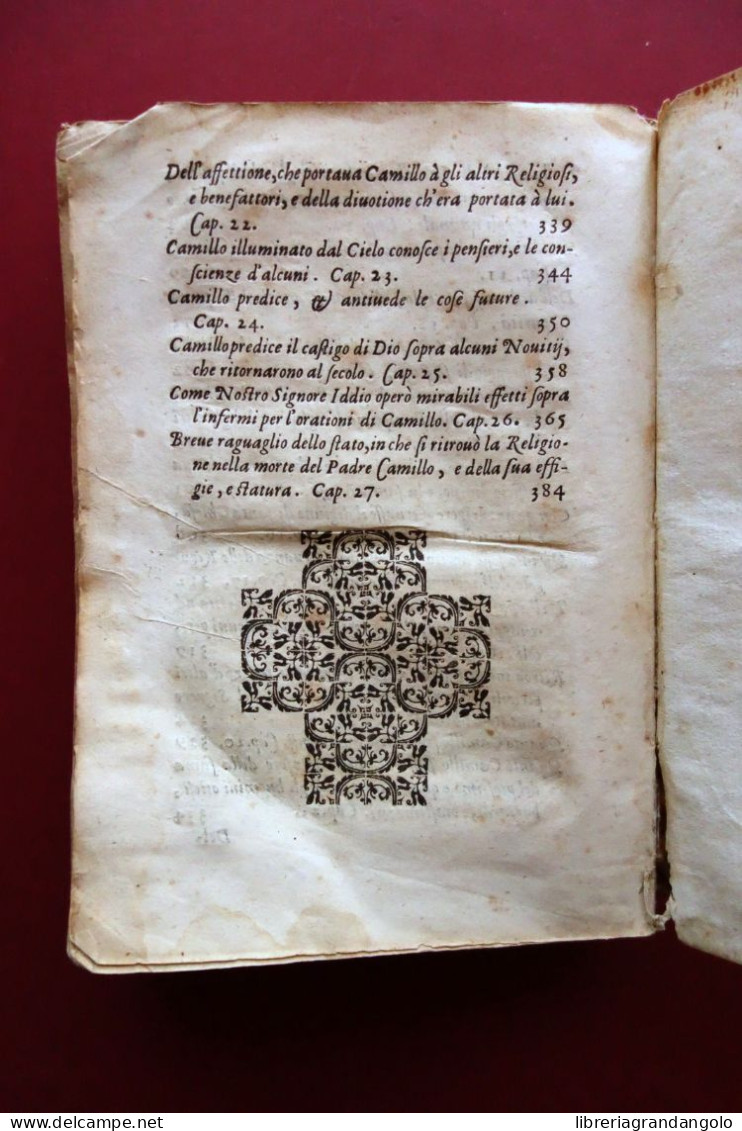 Dell'affettione, che portaua Camillo à gli altri Religiosi,
e benefattori, e della diuotione ch'era portata à lui.
Cap. 22. 339
Camillo illuminato dal Cielo conosce i pensieri, e le con-
scienze d'alcuni. Cap. 23. 344
Camillo predice, & antiuede le cose future.
Cap. 24. 350
Camillo predice il castigo di Dio sopra alcuni Nouitij,
che ritornarono al secolo. Cap. 25. 358
Come Nostro Signore Iddio operò mirabili effetti sopra
l'infermi per l'orationi di Camillo. Cap. 26. 365
Breue raguaglio dello stato, in che si ritrouò la Religio-
ne nella morte del Padre Camillo, e della sua effi-
gie, e statura. Cap. 27. 384
delcampe.net
libreriagrandangolo